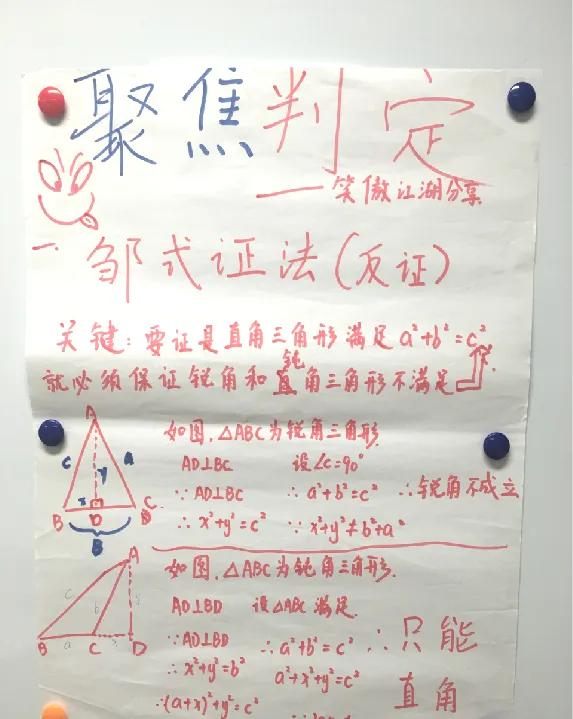 聚焦判定
——笑傲江湖分享
一. 邹式证法(反证)
关键:要证是直角三角形满足a²+b²=c²
就必须保证锐角和钝角三角形不满足
如图,△ABC为锐角三角形
AD⊥BC 设∠C=90°
∵AD⊥BC ∴a²+b²=c² ∴锐角不成立
∴x²+y²=c² ∵x²+y²≠b²+a²
A
c
y
a
x
B
D
C
B
如图,△ABC为钝角三角形.
AD⊥BD 设△ABC满足
∵AD⊥BD ∴a²+b²=c² ∴只能
∴x²+y²=b² a²+x²+y²=c² 直角
∴(a+x)²+y²=c²
A
c
b
B
a
C
D